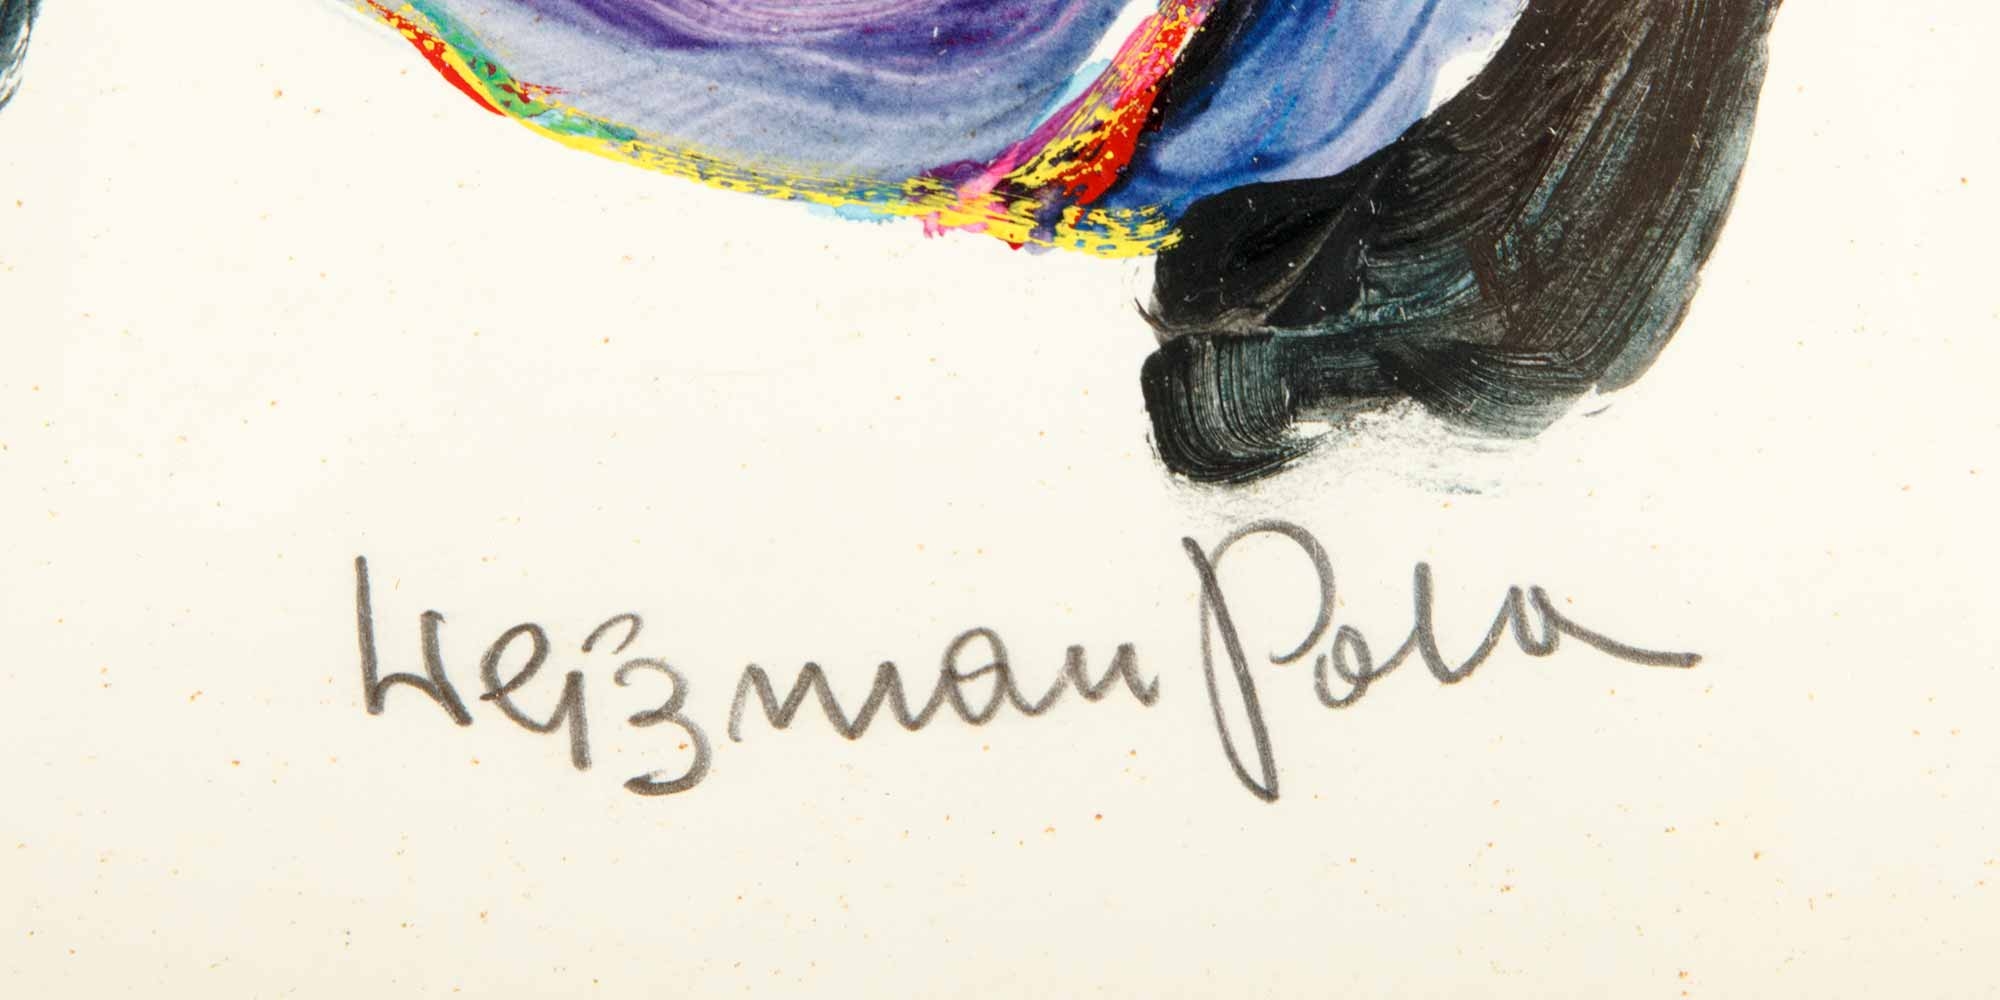 Weizman Pola